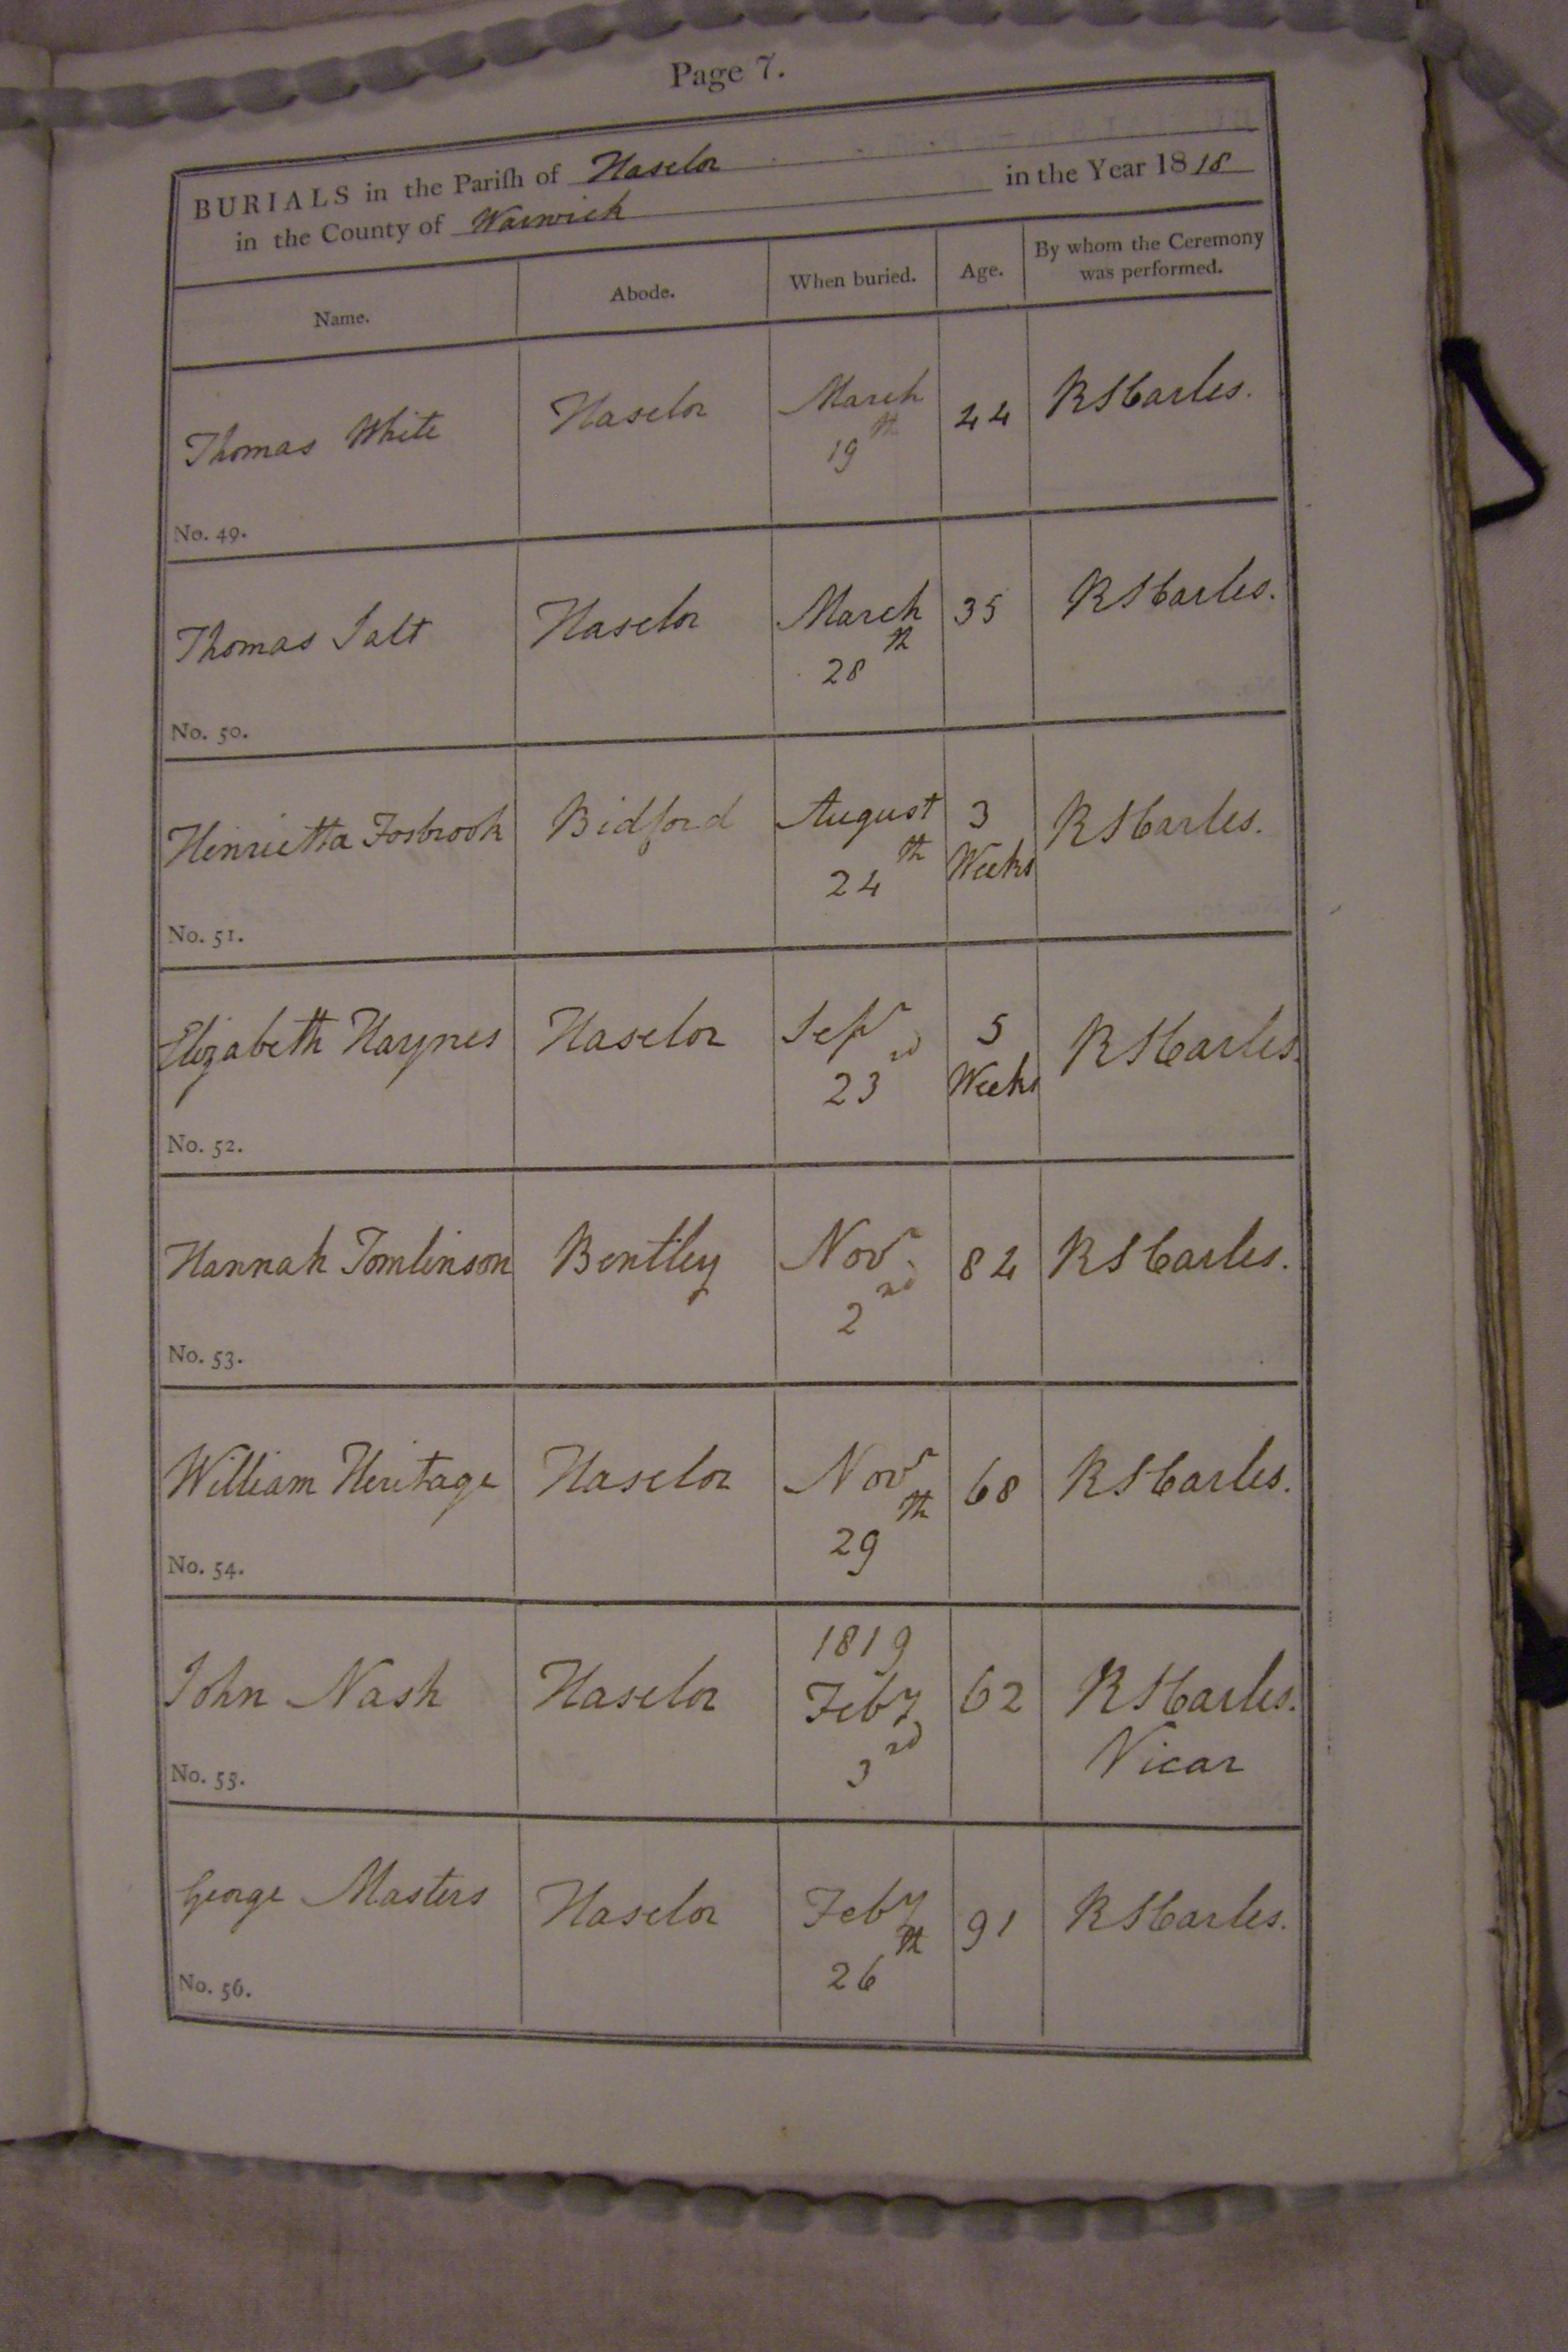 Page 7.
BURIALS in the Pariſh of Haselor in the Year 1818
in the County of Warwick
Name. Abode. When buried. Age. By whom the Ceremony
was performed.
Thomas White Haselor March 44 R S Carles.
19th
No. 49.
Thomas Salt Haselor March 35 R S Carles.
28th
No. 50.
Henrietta Fosbrook Bidford August 3 R S Carles.
24th Weeks
No. 51.
Elizabeth Haynes Haselor Sepr 5 R S Carles.
23rd Weeks
No. 52.
Hannah Tomlinson Bentley Novr. 84 R S Carles.
2nd
No. 53.
William Heritage Haselor Novr 68 R S Carles.
29th
No. 54.
1819
John Nash Haselor Feby 62 R S Carles.
3rd Vicar
No. 55.
George Masters Haselor Feby 91 R S Carles.
26th
No. 56.